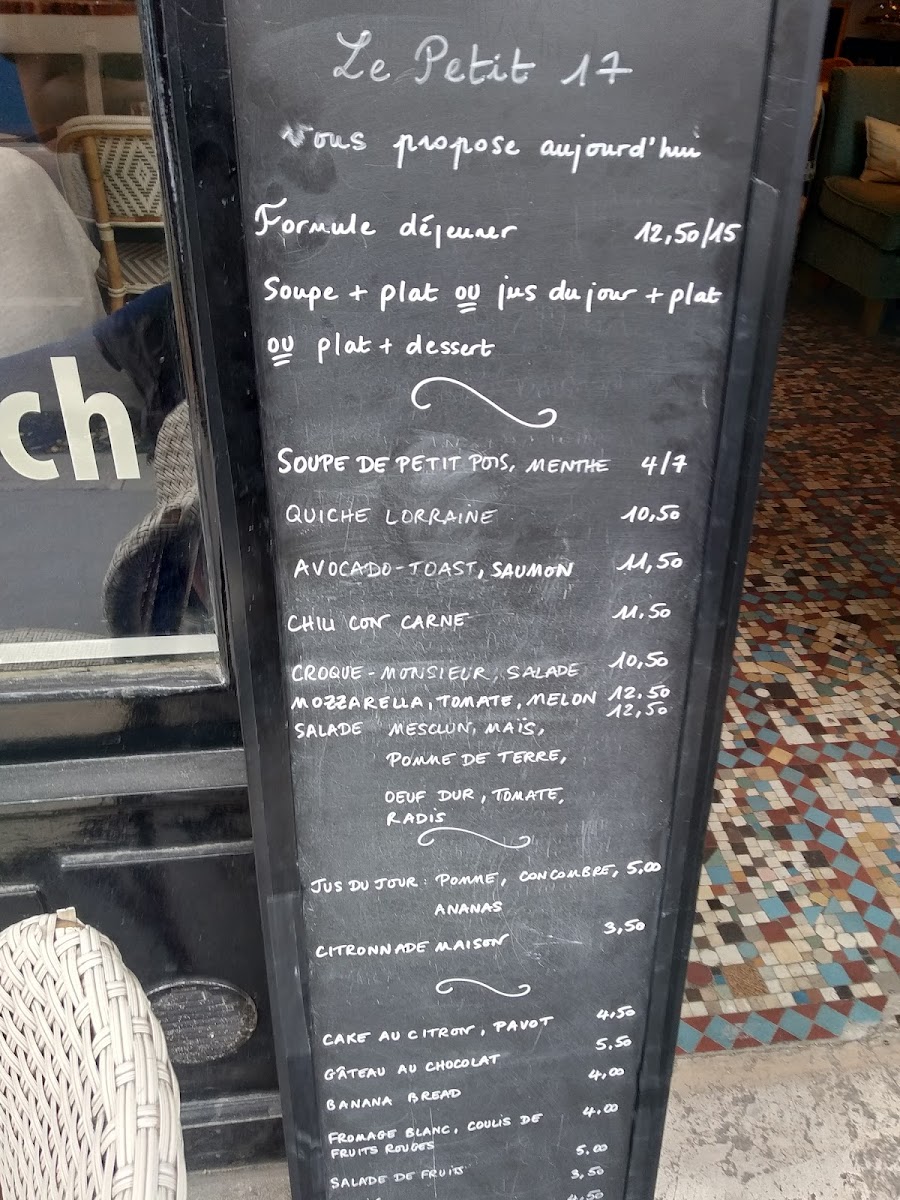 Le Petit 17
Vous propose aujourd'hui
Formule déjeuner 12,50/15
Soupe + plat ou jus du jour + plat
ou plat + dessert
SOUPE DE PETIT POIS, MENTHE 4/7
QUICHE LORRAINE 10,50
AVOCADO-TOAST, SAUMON 11,50
CHILI CON CARNE 11.50
CROQUE-MONSIEUR, SALADE 10,50
MOZZARELLA, TOMATE, MELON 12.50
SALADE MESCLUN, MAÏS, 12,50
POMME DE TERRE,
OEUF DUR, TOMATE,
RADIS
JUS DU JOUR: POMME, CONCOMBRE, 5,00
ANANAS
CITRONNADE MAISON 3,50
CAKE AU CITRON, PAVOT 4,50
GÂTEAU AU CHOCOLAT 5.50
BANANA BREAD 4,00
FROMAGE BLANC, COULIS DE 4.00
FRUITS ROUGES
SALADE DE FRUITS 5,00
3,50
4,50
ch